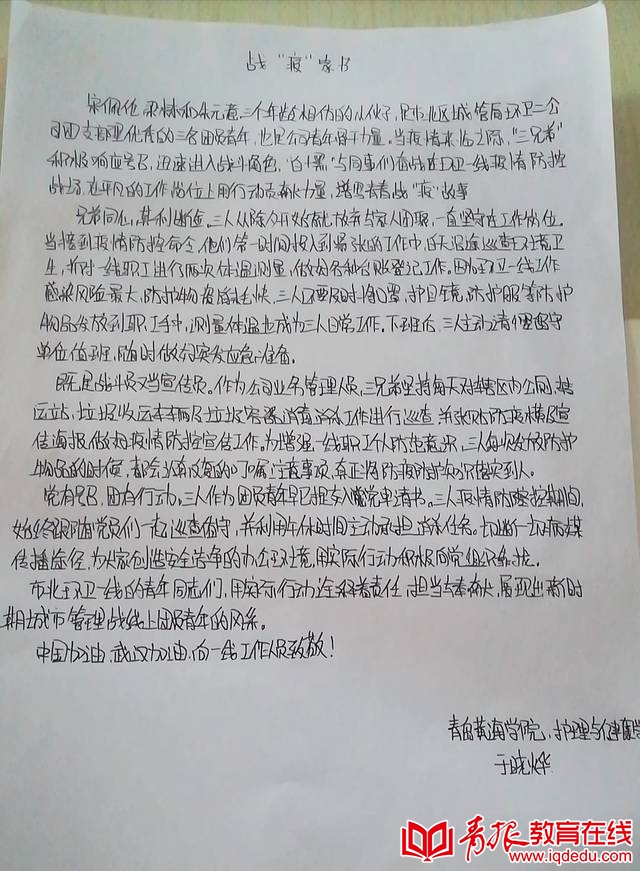 战“疫”家书
宋佩佳、梁林和朱元意三个年龄相仿的小伙子，是市北区城管局环卫二公
司四支部里优秀的三名团员青年，也是公司青年骨干力量。当疫情来临之际，“三兄弟”
积极响应号召，迅速进入战斗角色，“白+黑”与同事们奋战在环卫一线疫情防控
战场，在平凡的工作岗位上用行动贡献力量，谱写着战“疫”故事
兄弟同心，其利断金。三人从除夕开始就放弃与家人团聚，一直坚守在工作岗位。
当接到疫情防控命令，他们第一时间投入到紧张的工作中，每天沿途巡查环境卫
生，并对一线职工进行两次体温测量，做好各种台账登记工作。因为环卫一线工作
感染风险最大，防护物资消耗快，三人还要及时将口罩、护目镜、防护服等防护
物品发放到职工手中，测量体温也成为三人日常工作。下班后，三人主动请缨留守
单位值班，随时做好突发应急准备。
既是战斗员又当宣传员。作为公司业务管理人员，三兄弟坚持每天对辖区办公网、转
运站、垃圾收运车辆及垃圾容器消毒消杀工作进行巡查，并张贴防疫横及宣
传海报，做好疫情防控宣传工作。为增强一线职工人防范意识，三人每次发放防护
物品的时候，都会认真反复的叮嘱注意事项，真正将防疫防护知识落实到人。
党有号召，团有行动。三人作为团员青年早已提交入党申请书。三人疫情防控期间，
始终跟随党员们一起巡查值守，并利用午休时间主动承担消杀任务。切断一切病媒
传播途径，为大家创造安全洁净的办公环境，用实际行动积极向党组织靠拢。
市北环卫一线的青年同志们，用实际行动诠释着责任、担当与奉献，展现出新时
期城市管理战线上团员青年的风采。
中国加油，武汉加油，向一线工作人员致敬！
青岛黄海学院，护理与健康学
于晓烨
青报教育在线
www.iqdedu.com